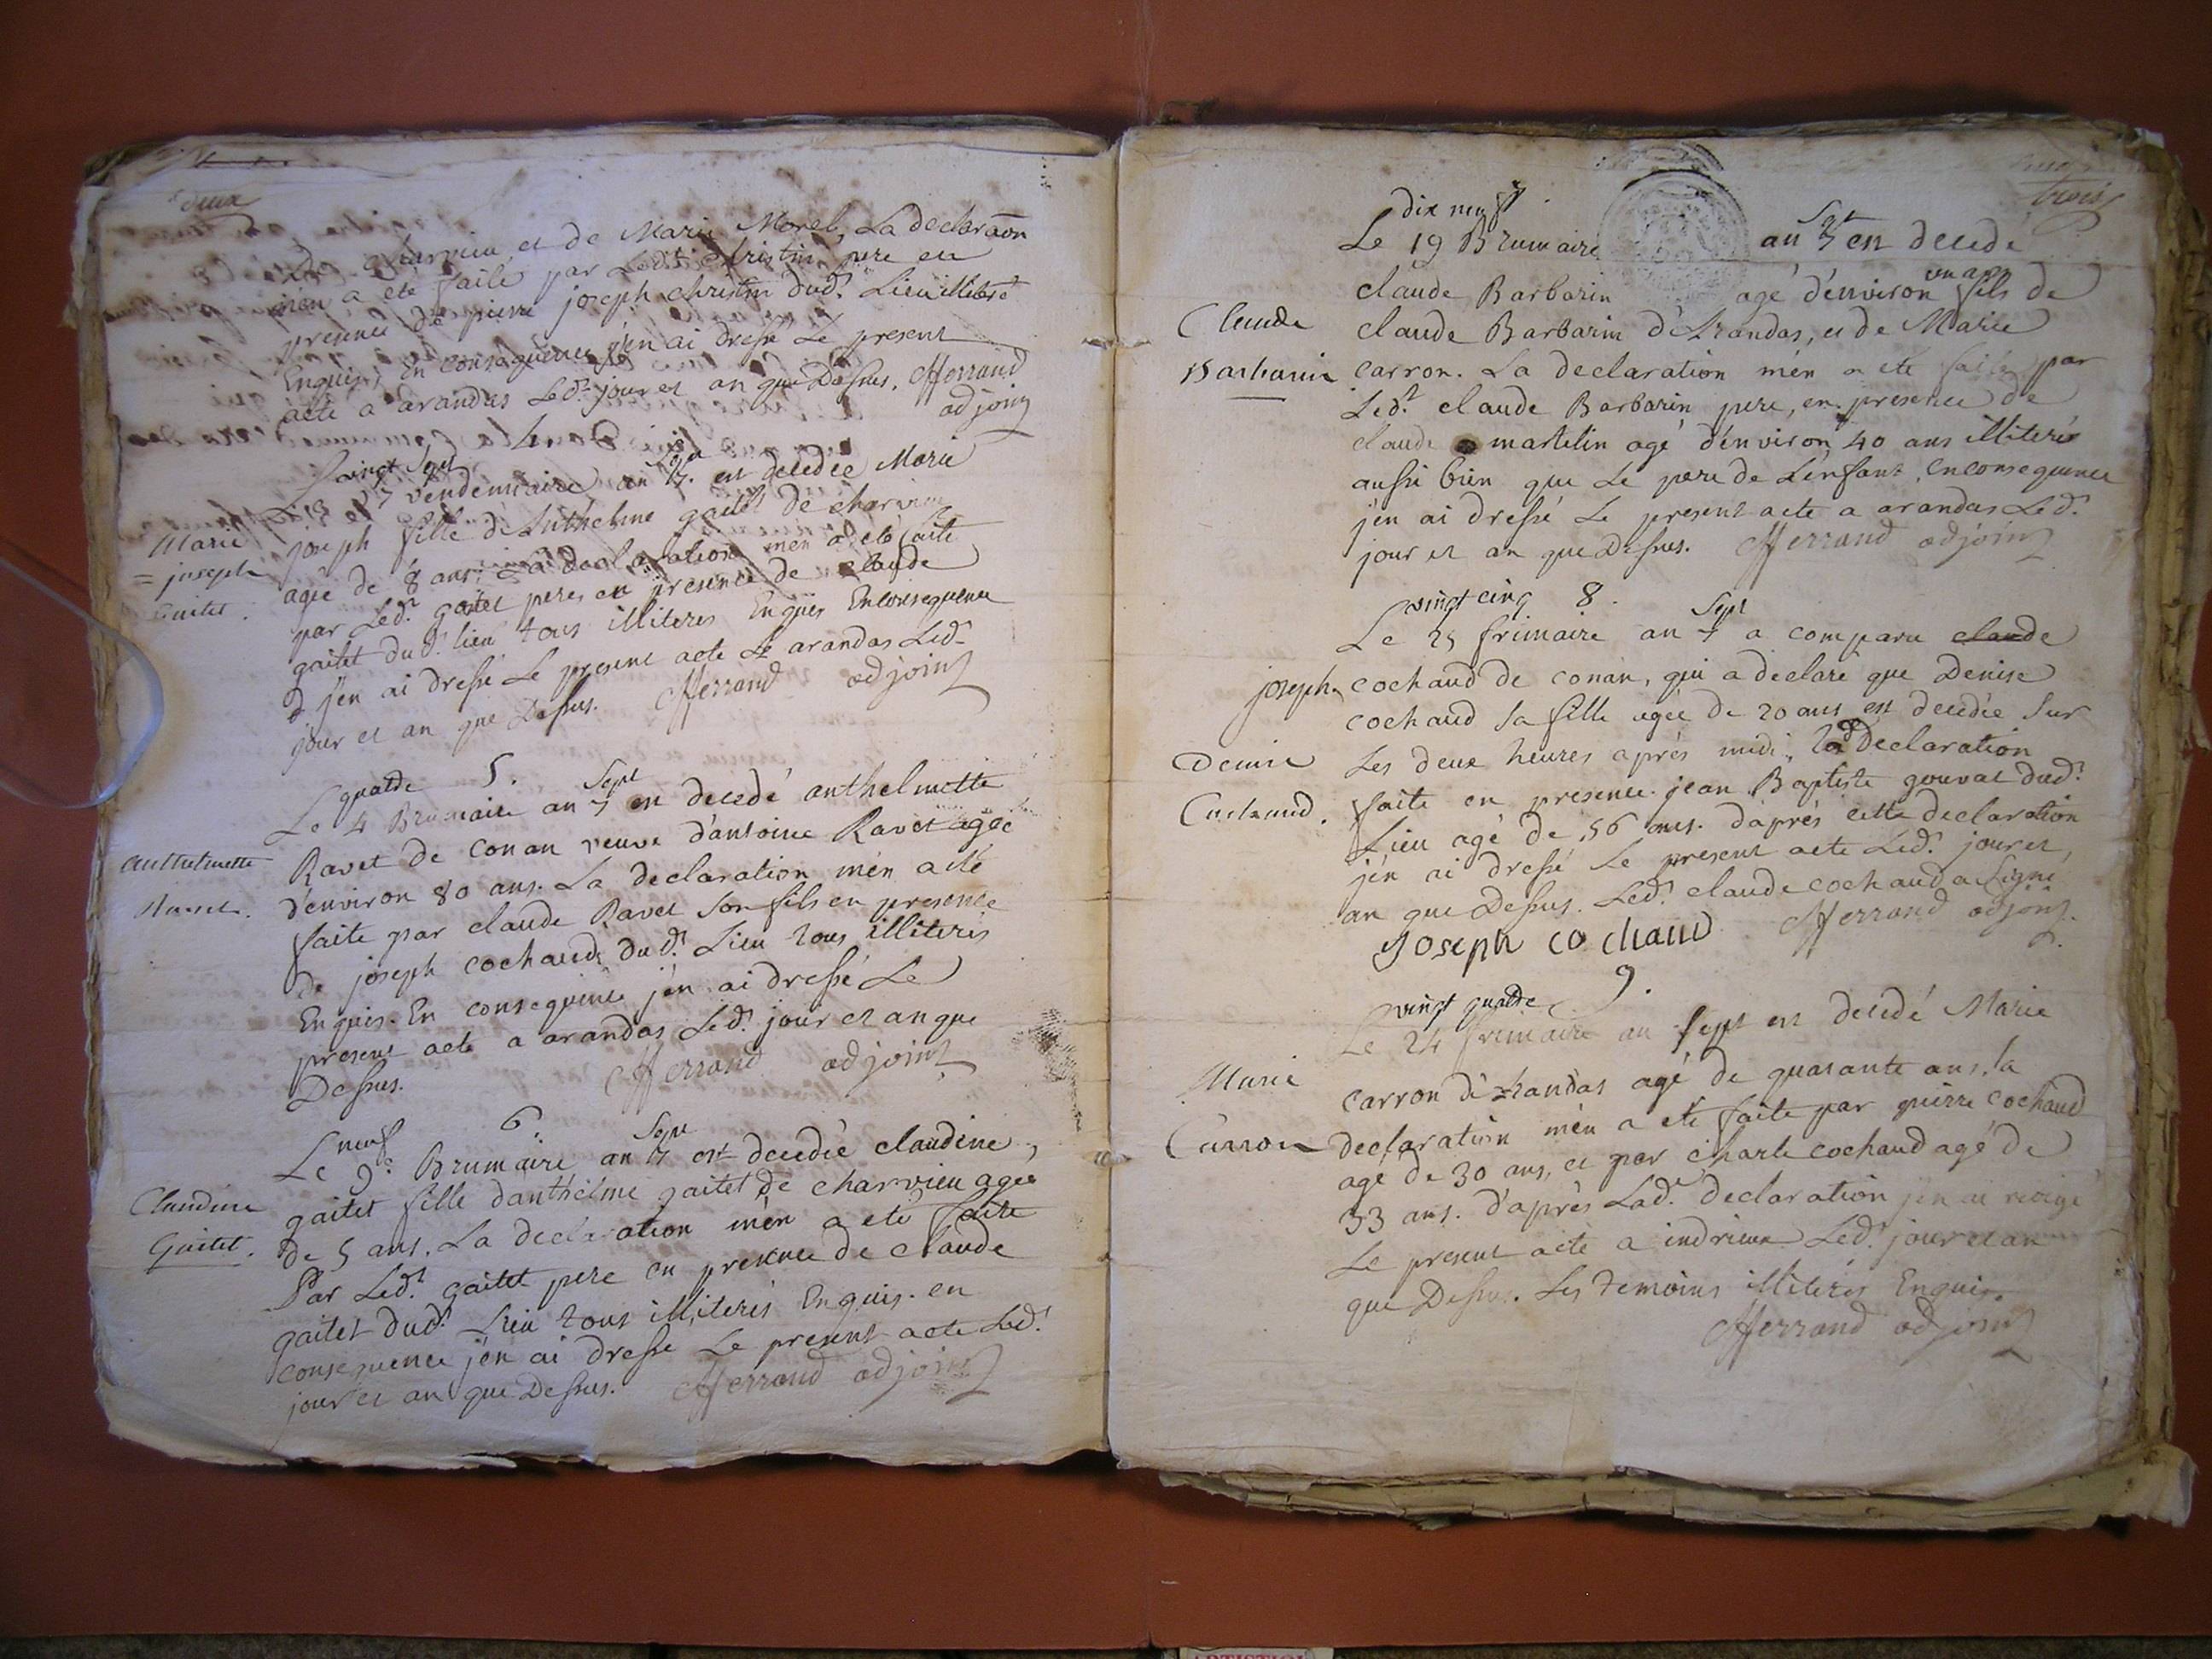 deux
De charvieu et de Marie Morel, La declaraõn
m'en a été faite par Ledt christin pere en
presence de pierre joseph christin dudt. Lieu illiterés
Enquis, En consequence j'en ai dressé Le present
acte a arandas Ledt. jour et an que Dessus. Ferrand
adjoint
4.
vingt Sept
Sept
Le 27 vendemiaire an 7. est decedée Marie
Marie
= joseph
Gaitet.
joseph fille d'Anthelme gaitet de charvieu
agée de 8 ans. La declaration m'en a été faite
par Ledt. gaitet pere, en presence de claude
gaitet dudt. lieu tous illiterés Enquis Enconsequence
j'en ai dressé Le present acte a arandas Ledt
jour et an que Dessus. Ferrand adjoint
5.
quatde
Sept
Le 4 Brumaire an 7 est decedé anthelmette
anthelmette
Ravet.
Ravet de Conan veuve d'antoine Ravet agée
d'environ 80 ans. La declaration m'en a été
faite par claude Ravet son fils en presence
de joseph cochaud dudt. Lieu tous illiterés
Enquis. En consequence j'en ai dressé Le
present acte a arandas Ledt. jour et an que
Dessus. Ferrand adjoint
6.
neuf
Sept
Le 9e Brumaire an 7 est decedée claudine
Claudine
Gaitet.
gaitet fille d'anthelme gaitet de charvieu agée
de 5 ans. La declaration m'en a eté faite
Par Ledt. gaitet pere en presence de claude
gaitet dudt. Lieu tous illiterés Enquis. en
consequence j'en ai dressé Le present acte Ledt.
jour et an que Dessus. Ferrand adjoint
trois
dix neuf
Sept
Le 19 Brumaire an 7 est decedé
un ans
claude Barbarin agé d'environ fils de
Claude
Barbarin
claude Barbarin d'Arandas, et de Marie
carron. La declaration m'en a eté faite par
Ledt. claude Barbarin pere, en presence de
claude martelin agé d'environ 40 ans illiteré
aussi bien que Le pere de L'enfant. Enconsequence
j'en ai dressé Le present acte a arandas Ledt.
jour et an que Dessus. Ferrand adjoint
8.
vingt cinq
Sept
Le 25 frimaire an 7 a comparu claude
joseph
cochaud de conan, qui a declaré que Denise
Denise
Cochaud.
cochaud sa fille agée de 20 ans est decedée Sur
Les deux heures après midi, lad declaration
faite en presence jean Baptiste gouvat dudt.
Lieu agé de 56 ans. d'après cette declaration
j'en ai dressé Le present acte Ledt. jour et,
an que Dessus. Ledt. claude cochaud a Signé
Joseph cochaud Ferrand adjoint.
9.
vingt quatde
Le 24 frimaire an Sept est decedé Marie
Marie
Carron
carron d'Arandas agé de quarante ans. la
declaration m'en a eté faite par pierre cochaud
agé de 30 ans, et par charle cochaud agé de
33 ans. d'après Lade. declaration j'en ai redigé
Le present acte a indrieux Ledt. jour et an
que Dessus. Les temoins illiterés Enquis.
Ferrand adjoint